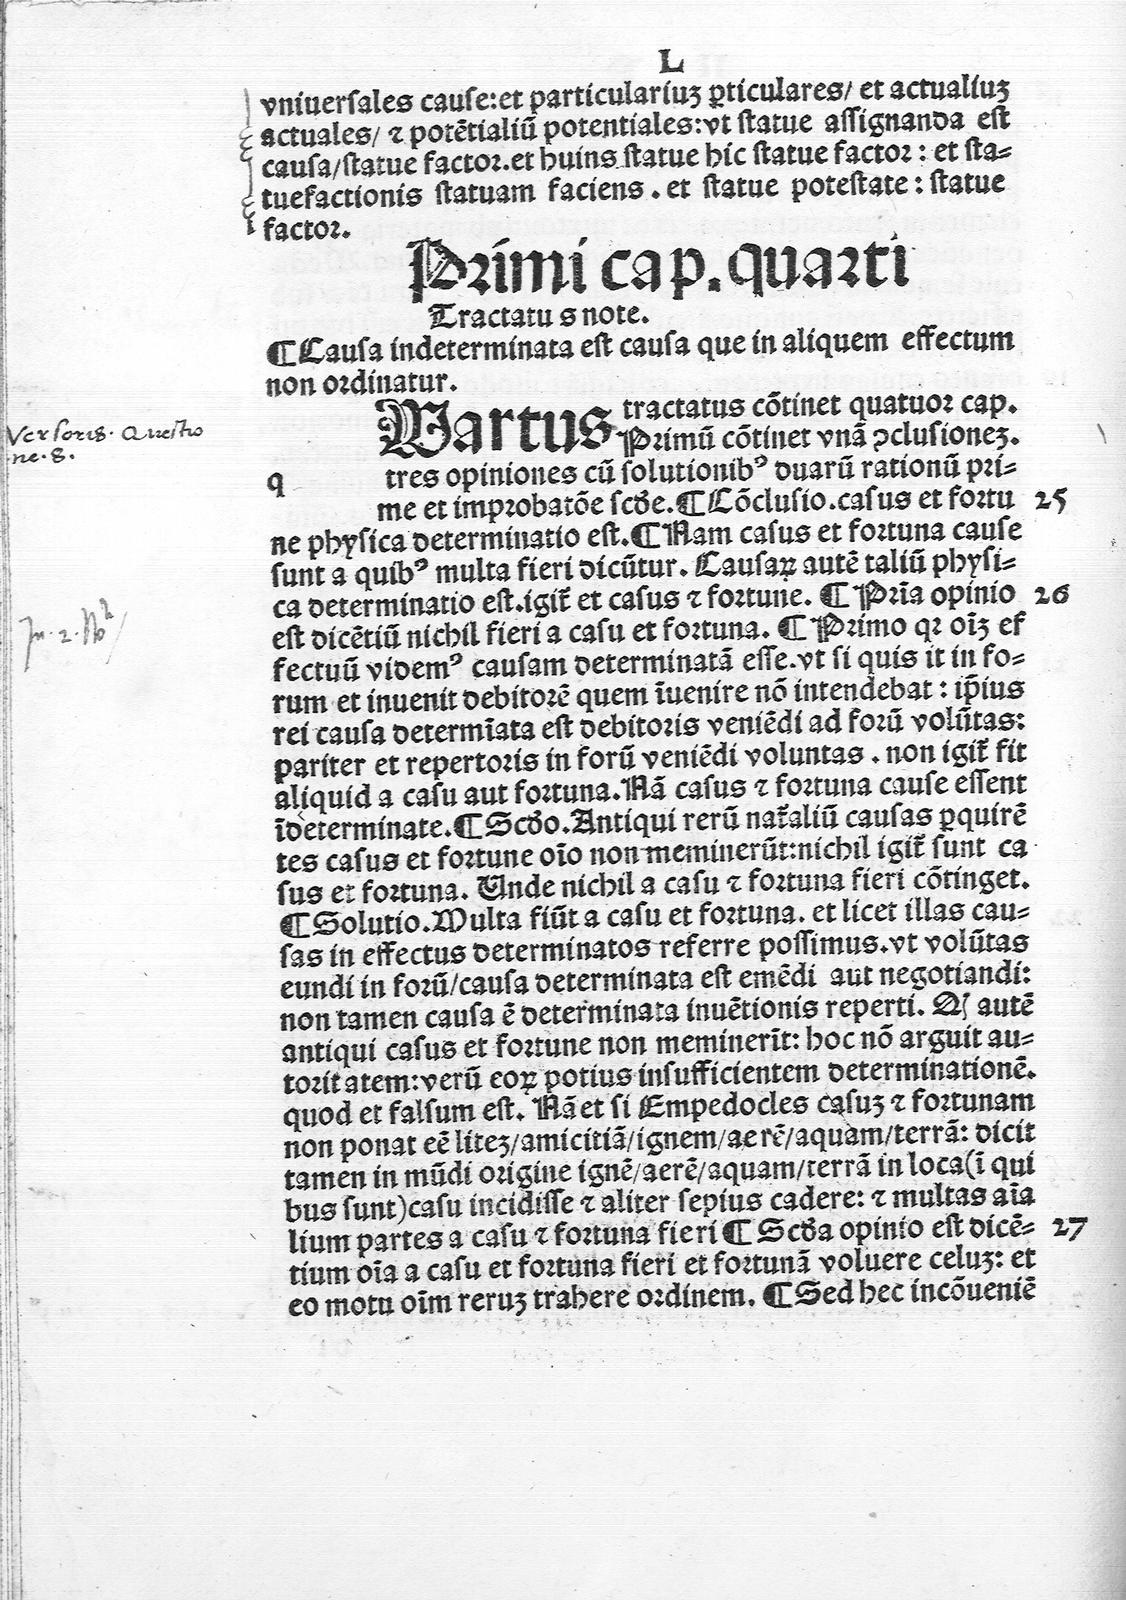 L
vniuersales cause:et particulariuꝫ ꝑticulares/ et actualiuꝫ
actuales/ ⁊ potētialiū potentiales:vt statue assignanda est
causa/statue factor.et huius statue hic statue factor: et sta⸗
tuefactionis statuam faciens. et statue potestate: statue
factor.
Primi cap. quarti
Tractatu s note.
¶ Causa indeterminata est causa que in aliquem effectum
non ordinatur.
Versoris. Questio
ne. 8.
Wartus tractatus cōtinet quatuor cap.
Primū cōtinet vnā ↄclusioneꝫ.
q tres opiniones cū solutionibꝰ duarū rationū pri⸗
me et improbatōe scd̄e. ¶ Cōclusio. casus et fortu 25
ne physica determinatio est. ¶ Nam casus et fortuna cause
sunt a quibꝰ multa fieri dicūtur. Causaꝝ autē taliū physi⸗
ca determinatio est.igit̄ et casus ⁊ fortune. ¶ Pria̅ opinio 26
In. 2.
est dicētiū nichil fieri a casu et fortuna. ¶ Primo qꝛ oīꝫ ef
fectuū videmꝰ causam determinatā esse.vt si quis it in fo⸗
rum et inuenit debitorē quem īuenire nō intendebat: ip̄ius
rei causa determīata est debitoris veniēdi ad forū volūtas:
pariter et repertoris in forū veniēdi voluntas. non igit̄ fit
aliquid a casu aut fortuna. Nā casus ⁊ fortuna cause essent
īdeterminate. ¶ Scd̄o. Antiqui rerū nat̄aliū causas ꝑquirē
tes casus et fortune oīo non meminerūt:nichil igit̄ sunt ca
sus et fortuna. Unde nichil a casu ⁊ fortuna fieri cōtinget.
¶ Solutio. Multa fiūt a casu et fortuna. et licet illas cau⸗
sas in effectus determinatos referre possimus.vt volūtas
eundi in forū/causa determinata est emēdi aut negotiandi:
non tamen causa ē determinata inuētionis reperti. Qꝫ autē
antiqui casus et fortune non meminerīt: hoc nō arguit au⸗
toritatem:verū eoꝝ potius insufficientem determinationē.
quod et falsum est. Nā et si Empedocles casuꝫ ⁊ fortunam
non ponat eē liteꝫ/amicitiā/ignem/aerē/aquam/terrā: dicit
tamen in mūdi origine ignē/aerē/aquam/terrā in loca(ī qui
bus sunt)casu incidisse ⁊ aliter sepius cadere: ⁊ multas aīa
lium partes a casu ⁊ fortuna fieri ¶ Scd̄a opinio est dicē⸗ 27
tium oīa a casu et fortuna fieri et fortunā voluere celuꝫ: et
eo motu oīm reruꝫ trahere ordinem. ¶ Sed hec incōueniē